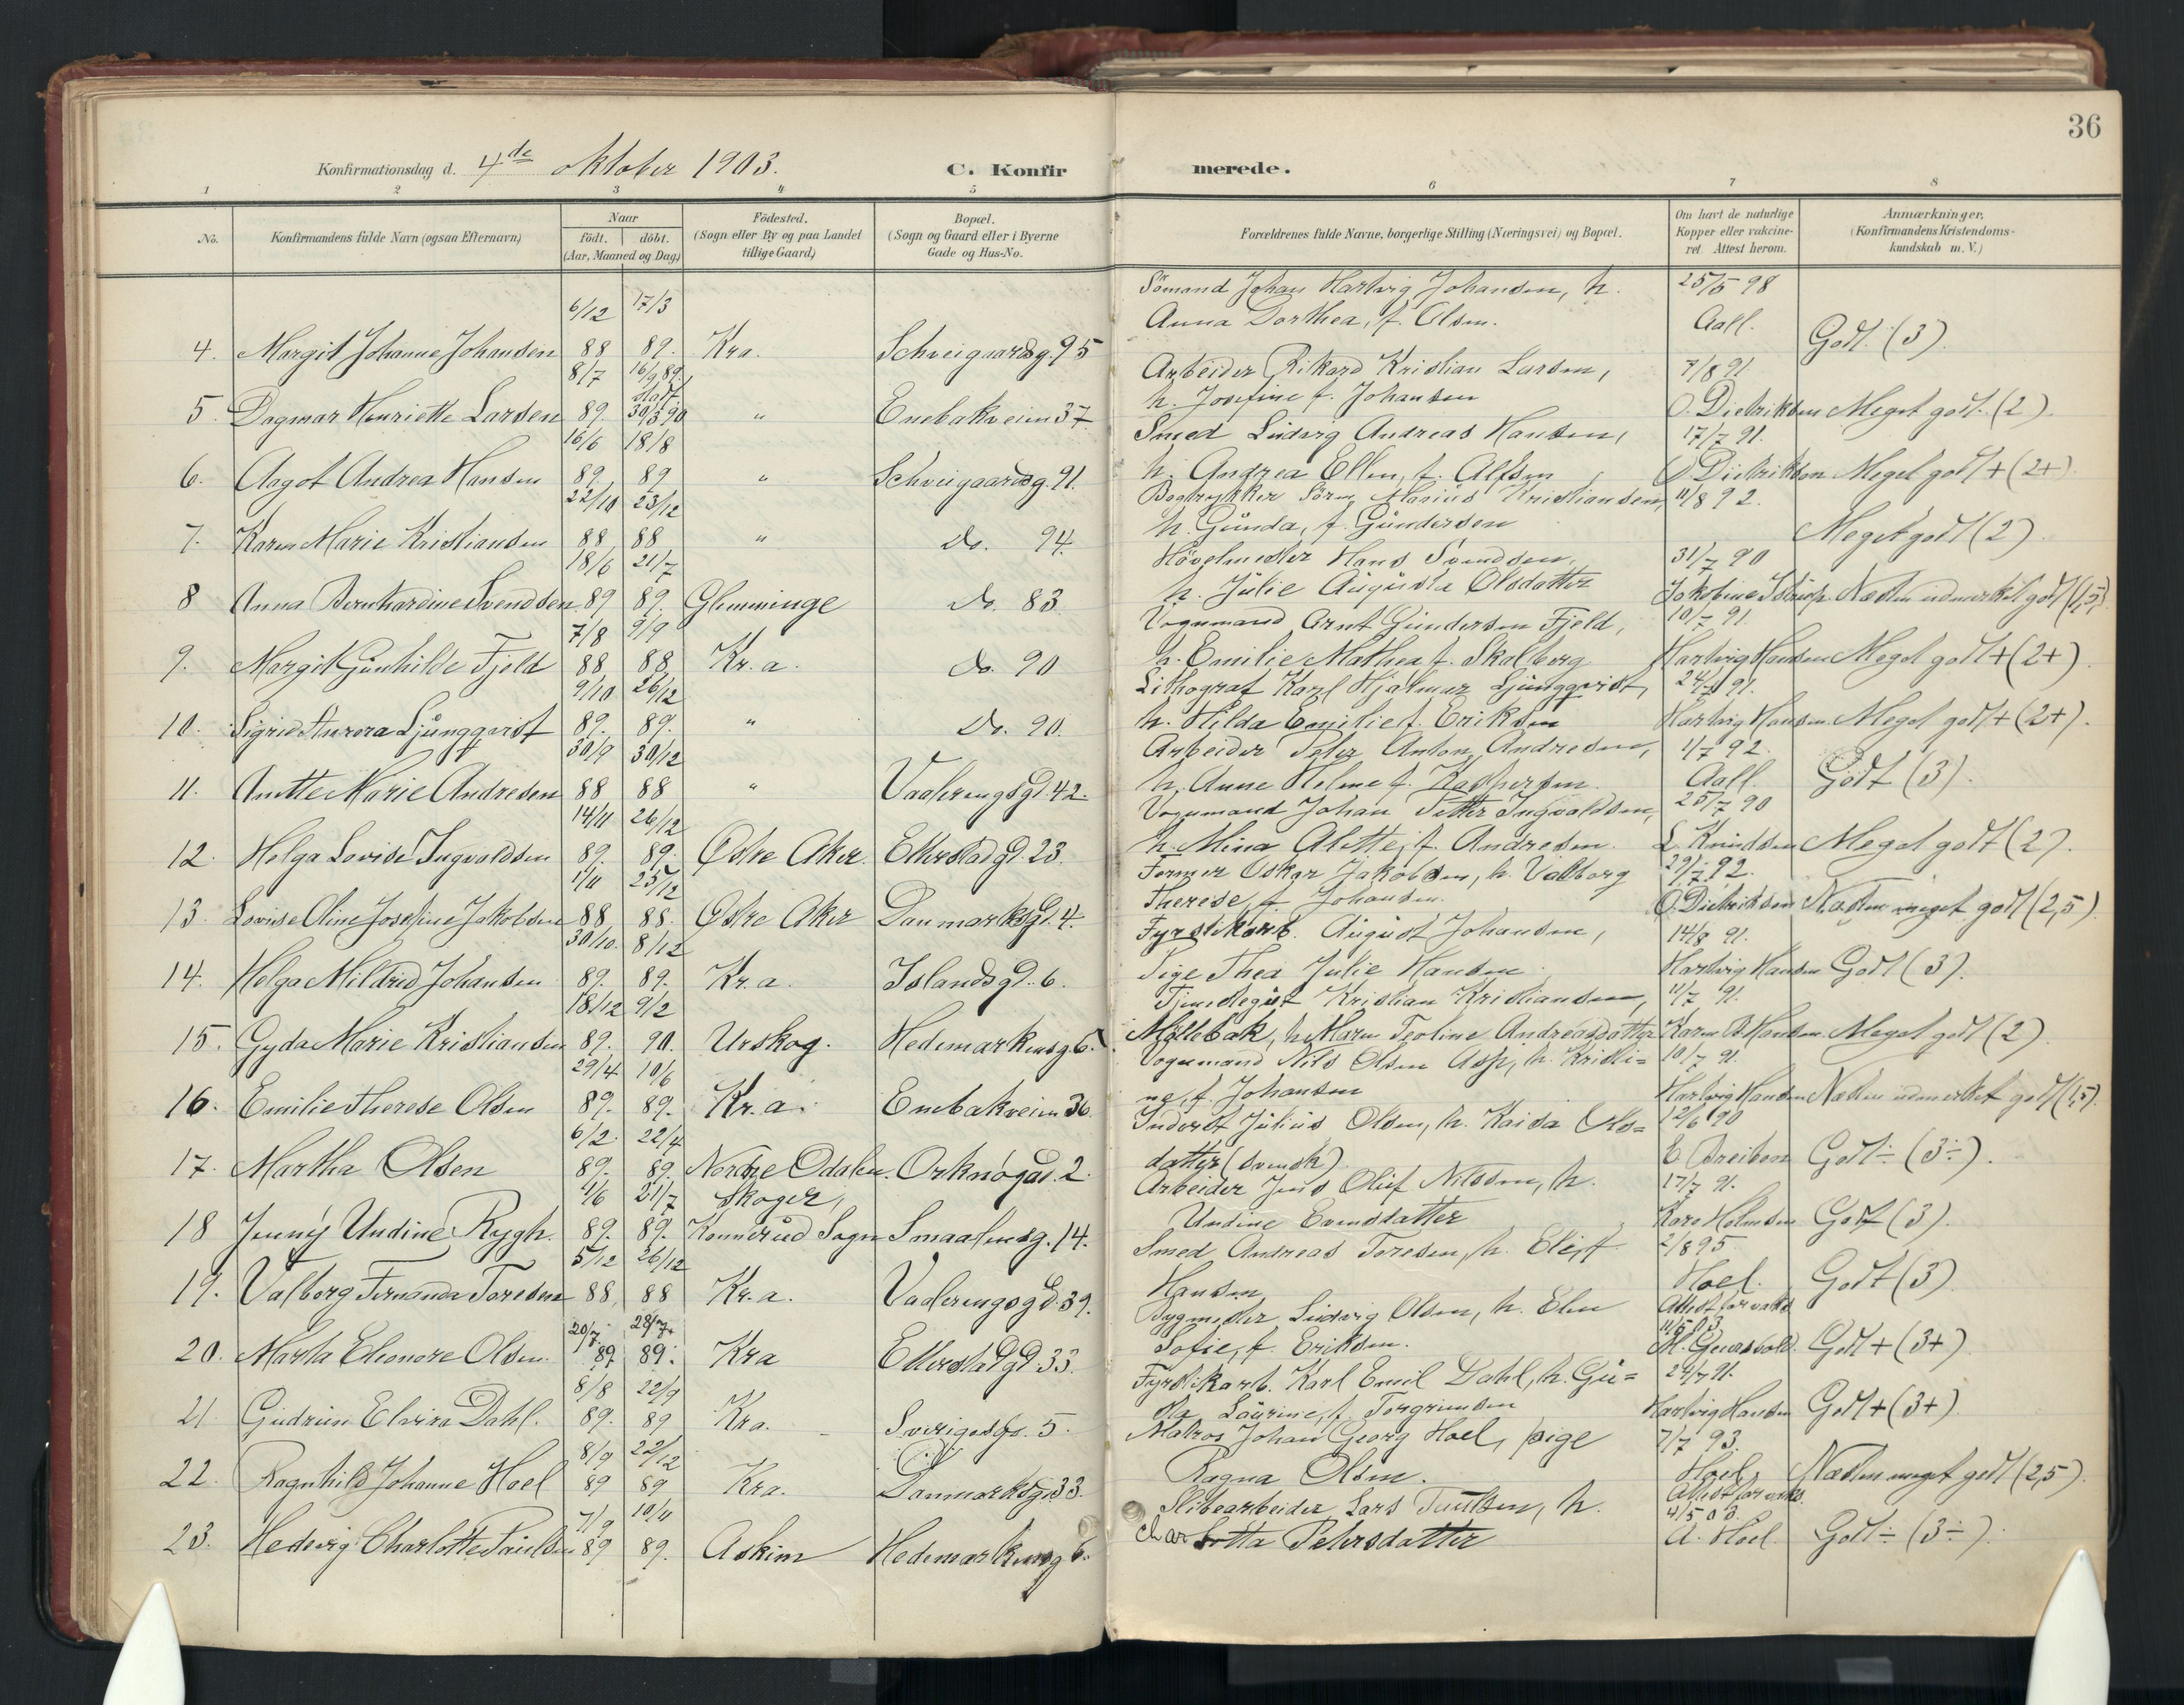 36
Konfirmationsdag d. 4de oktober 1903. C. Konfirmerede.
1 2 3 4 5 6 7 8
No. Konfirmandens fulde Navn (ogsaa Efternavn) Naar födt. döbt. (Aar, Maaned og Dag) Födested. (Sogn eller By og paa Landet tillige Gaard) Bopæl. (Sogn og Gaard eller i Byerne Gade og Hus-No. Forældrenes fulde Navne, borgerlige Stilling (Næringsvei) og Bopæl. Om havt de naturlige Kopper eller vakcineret. Attest herom. Anmærkninger. (Konfirmandens Kristendomskundskab m. V.)
6/12 17/3 Sömand Johan Hartvig Johansen, h. 25/5 98
4. Margit Johanne Johansen 88 89. Kra. Schweigaardsg. 95 Anna Dorthea, f. Olsen. Aall. Godt. (3).
8/7 16/9 89. Arbeider Rikard Kristian Larsen, 7/8 91.
5. Dagmar Henriette Larsen 89. 30/3 90 " Enebakveien 37 h. Josefine f. Johansen O. Dietrikson Meget godt. (2).
16/6 18/8 Smed Ludvig Andreas Hansen, 17/7 91.
6. Aagot Andrea Hansen 89. 89 " Schweigaardsg. 91. h. Andrea Ellen, f. Alfsen O Dietrikson Meget godt + (2+).
22/10 23/12 Bogtrykker Sören Marius Kristiansen, 11/8 92.
7. Karen Marie Kristiansen 88 88 " do. 94. h. Gunda, f. Gundersen Meget godt (2).
18/6 21/7 Hövelmester Hans Svendsen, 31/7 90
8 Anna Bernhardine Svendsen. 89 89. Glemminge do. 83. h. Julie Augusta Olsdatter Næsten udmerket godt (1,5).
7/8 9/9 Vognmand Arnt Gundersen Fjeld, 10/7 91.
9. Margit Gunhilde Fjeld 88 88. Kr.a. do. 90 h. Emilie Mathea f. Skalberg Hartvig Hansen Meget godt + (2+).
9/10 26/12 Lithograf Karl Hjalmar Ljungqvist, 91.
10. Sigrid Aurora Ljungqvist 89. 89. " do. 90. h. Hilda Emilie f. Eriksen Hartvig Hansen. Meget godt + (2+).
30/9 30/12 Arbeider Peter Anton Andresen, 1/7 92.
11. Anette Marie Andresen 88 88 " Vaalerengsgd. 42. h. Anne Helene f. Kaspersen Aall. Godt (3).
14/11 26/12 Vognmand Johan Petter Ingvaldsen, 25/7 90
12. Helga Lovise Ingvaldsen 89. 89. Østre Aker. Etterstadgd. 23. h. Mina Alette, f. Andresen. L. Knudsen Meget godt (2).
1/11 25/12 Former Oskar Jakobsen, h. Valborg 29/7 92.
13. Lovise Oline Josefine Jakobsen 88 88. Østre Aker Danmarksgd. 4. Therese, f. Johansen. O. Dietrikson Næsten meget godt (2,5).
30/10. 8/12 Fyrstikarb. August Johansen, 14/8 91.
14. Helga Mildred Johansen 89. 89. Kr.a. Islandsgd. 6. Pige Thea Julie Hansen. Hartvig Hansen Godt (3).
18/12 9/2 Tjenestegut Kristian Kristiansen, 11/7 91.
15. Gyda Marie Kristiansen 89. 90. Urskog. Hedemarkensg. 6. Möllebak, h. Maren Teoline Andreasdatter Karen B. Hansen. Meget godt (2).
29/4 10/6 Vognmand Nils Olsen Asp, h. Kristi= 10/7 91.
16. Emilie Therese Olsen 89. 89. Kr.a. Enebakveien 36. ne, f. Johansen Hartvig Hansen Næsten udmerket godt (1,5).
6/2. 22/4 Inderst Julius Olsen, h. Kaisa Ols= 12/6 90
17. Martha Olsen 89. 89. Nordre Odalen. Orknögad. 2. datter (svensk). Godt ÷ (3÷).
1/6 21/7 Skoger, Arbeider Jens Oluf Nilssen, h. 17/7 91.
18 Jenny Undine Rygh. 89. 89. Konnerud Sogn Smaalensg. 14. Undine Evensdatter Karo Holmsen Godt (3).
5/12 26/12 Smed Andreas Toresen, h. Elise, f. 2/8 95.
19. Valborg Fernanda Toresen 88. 88 Kr.a. Vaalerengsgd. 39. Hansen Hoel. Godt (3)
20/7. 28/7. Bygmester Ludvig Olsen, h. Elen Attest for vakc. 11/5 03.
20. Marta Eleonore Olsen. 89 89. Kra Etterstadgd. 33. Sofie, f. Eriksen. Godt + (3+)
8/8 22/9 Fyrstikarb. Karl Emil Dahl, h. Gu= 24/7 91.
21. Gudrun Elvira Dahl. 89. 89 Kra. Sverigesg. 5. sta Laurine, f. Torgrimsen Hartvig Hansen Godt + (3+)
8/9 22/12 Matros Johan Georg Hoel, pige 7/7 93.
22. Ragnhild Johanne Hoel 89 89 Kra. Danmarksgd. 33. Ragna Olsen. Hoel, Næsten meget godt (2,5).
7/9 10/11 Slibearbeider Lars Paulsen, h. Attest for vakc. 4/5 03.
23. Hedevig Charlotte Paulsen 89 89. Askim Hedemarkensg 6. charlotta Pehrsdatter A. Hoel Godt ÷ (3÷).